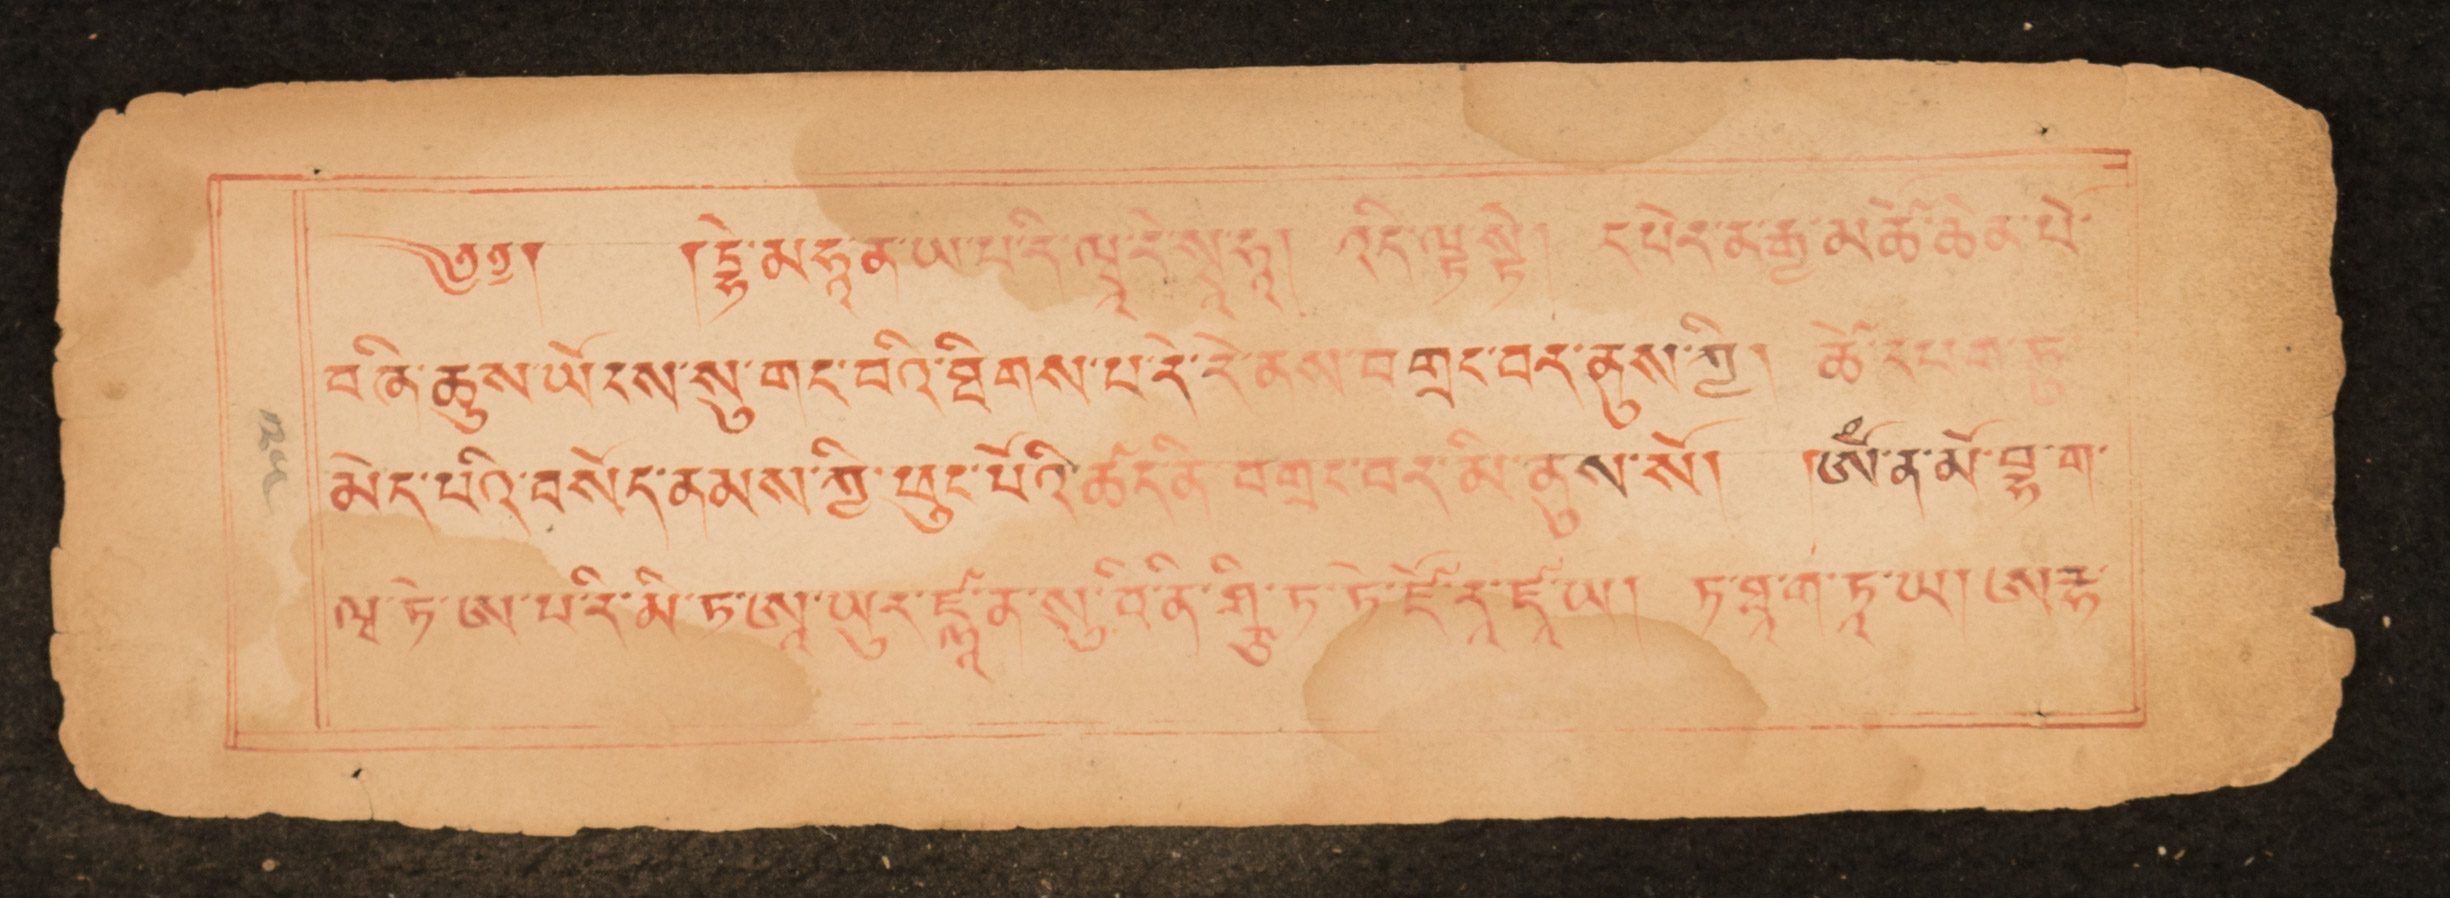 ༄༅། །དྡྷེ་མ་ཧཱ་ན་ཡ་པ་རི་ཝཱ་རེ་སྭཱ་ཧཱ། འདི་ལྟ་སྟེ། ད་པེར་ན་རྒྱ་མཚོ་ཆེན་པོ་
བཞི་ཆུས་ཡོངས་སུ་གང་བའི་ཐིགས་པ་རེ་རེ་ནས་བགྲང་བར་ནུས་ཀྱི། ཚེ་དཔག་ཏུ་
མེད་པའི་བསོད་ནམས་ཀྱི་ཕུང་པོའི་ཚད་ནི་བགྲང་བར་མི་ནུས་སོ། །ཨོཾ་ན་མོ་བྷ་ག་
ཝ་ཏེ་ཨ་པ་རི་མི་ཏ་ཨཱ་ཡུར་ཛྙཱ་ན་སུ་བི་ནི་ཤྩི་ཏ་ཏེ་ཛོ་རཱ་ཛཱ་ཡ། ཏ་ཐཱ་ག་ཏཱ་ཡ། ཨརྷ་